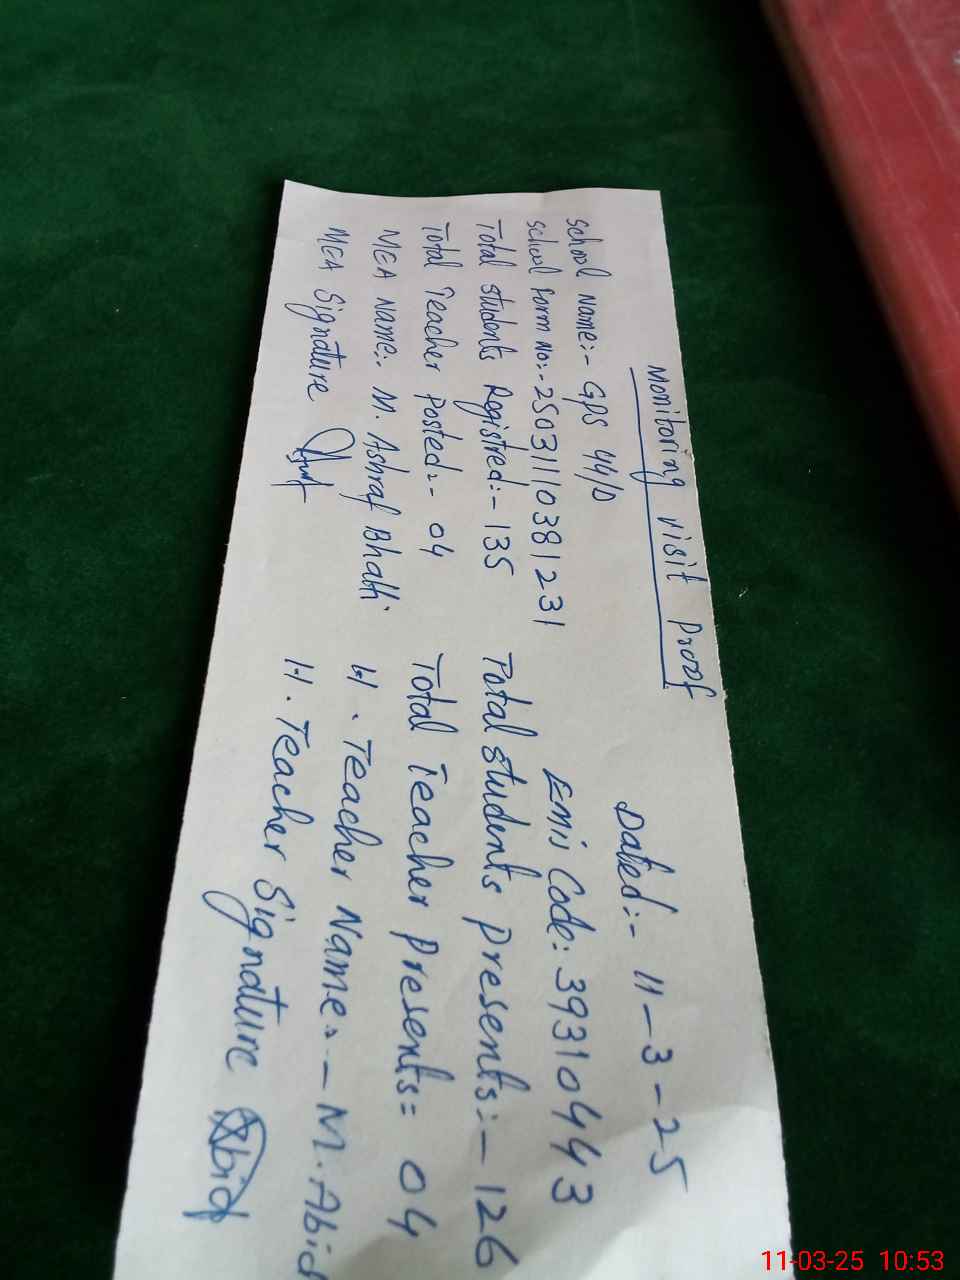 Monitoring visit Proof
Dated:- 11-3-25
School Name:- GPS 44/D
Emis Code: 39310443
School Form No:- 2503110381231
Total students Registred:- 135 Total students Presents:- 126
Total Teacher Posted:- 04 Total Teacher Presents= 04
MEA Name:- M. Ashraf Bhatti H. Teacher Name:- M. Abid
MEA Signature H. Teacher Signature Abid
11-03-25 10:53